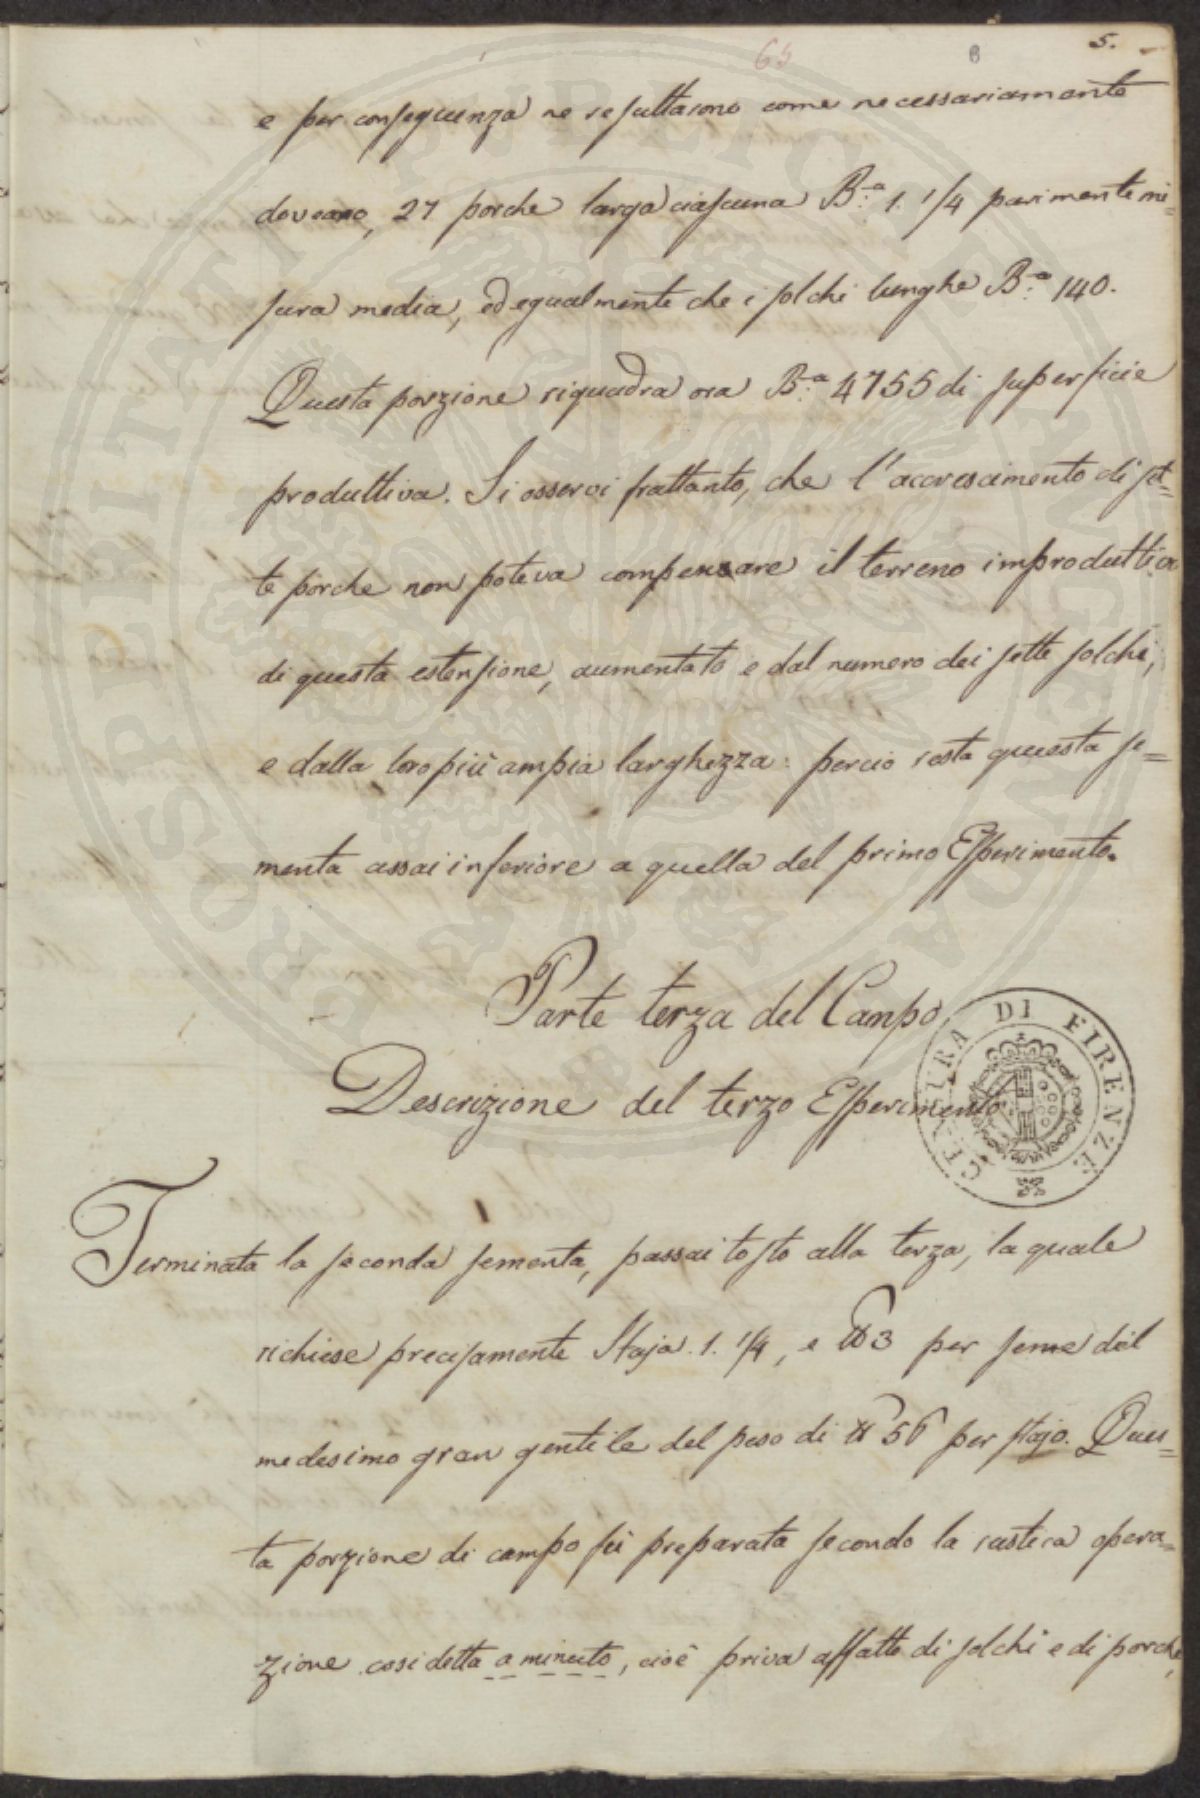 65 8 5.
e per conseguenza ne resultarono come necessariamente
doveano, 27 porche larga ciascuna B.ª 1. 1/4 parimente mi=
sura media, ed egualmente che i solchi lunghe B.ª 140.
Questa porzione riquadra ora B.ª 4755 di superficie
produttiva. Si osservi frattanto, che l'accrescimento di set=
te porche non poteva compensare il terreno improduttivo
di questa estensione, aumentato e dal numero dei sette solchi,
e dalla loro più ampia larghezza: percio resta questa se=
menta assai inferiore a quella del primo Esperimento.
Parte terza del Campo
Descrizione del terzo Esperimento
Terminata la seconda sementa, passai tosto alla terza, la quale
richiese precisamente Staja. 1. 1/4, e ℔ 3 per seme del
medesimo gran gentile del peso di ℔ 56 per stajo. Ques=
ta porzione di campo fù preparata secondo la rastica opera=
zione cosi detta a minuto, cioè priva affatto di solchi e di porche,
PROSPERITATI PUBLICAE AUGENDAE
DI FIRENZE